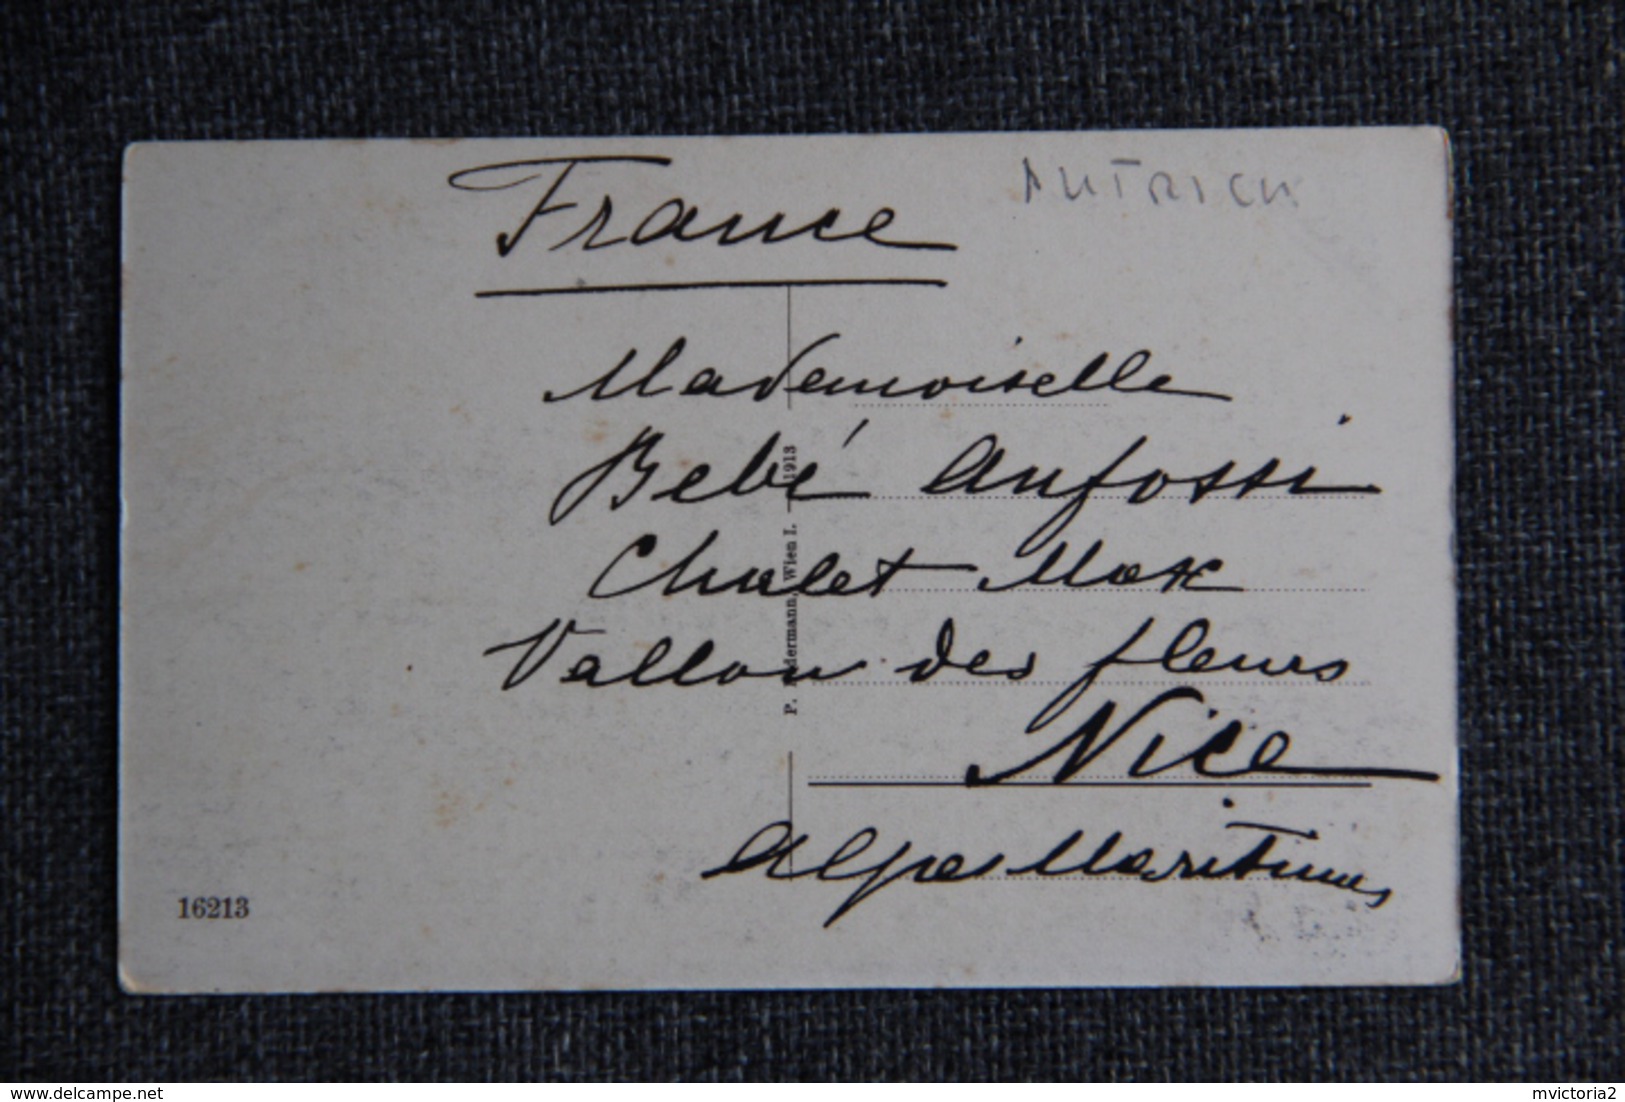 France
AUTRICH
Mademoiselle
Bebé Anfossi
Chalet Max
Vallon des fleurs
Nice
Alpes Maritimes
P. Ledermann, Wien I. 1913
16213
delcampe.net
mvictoria2